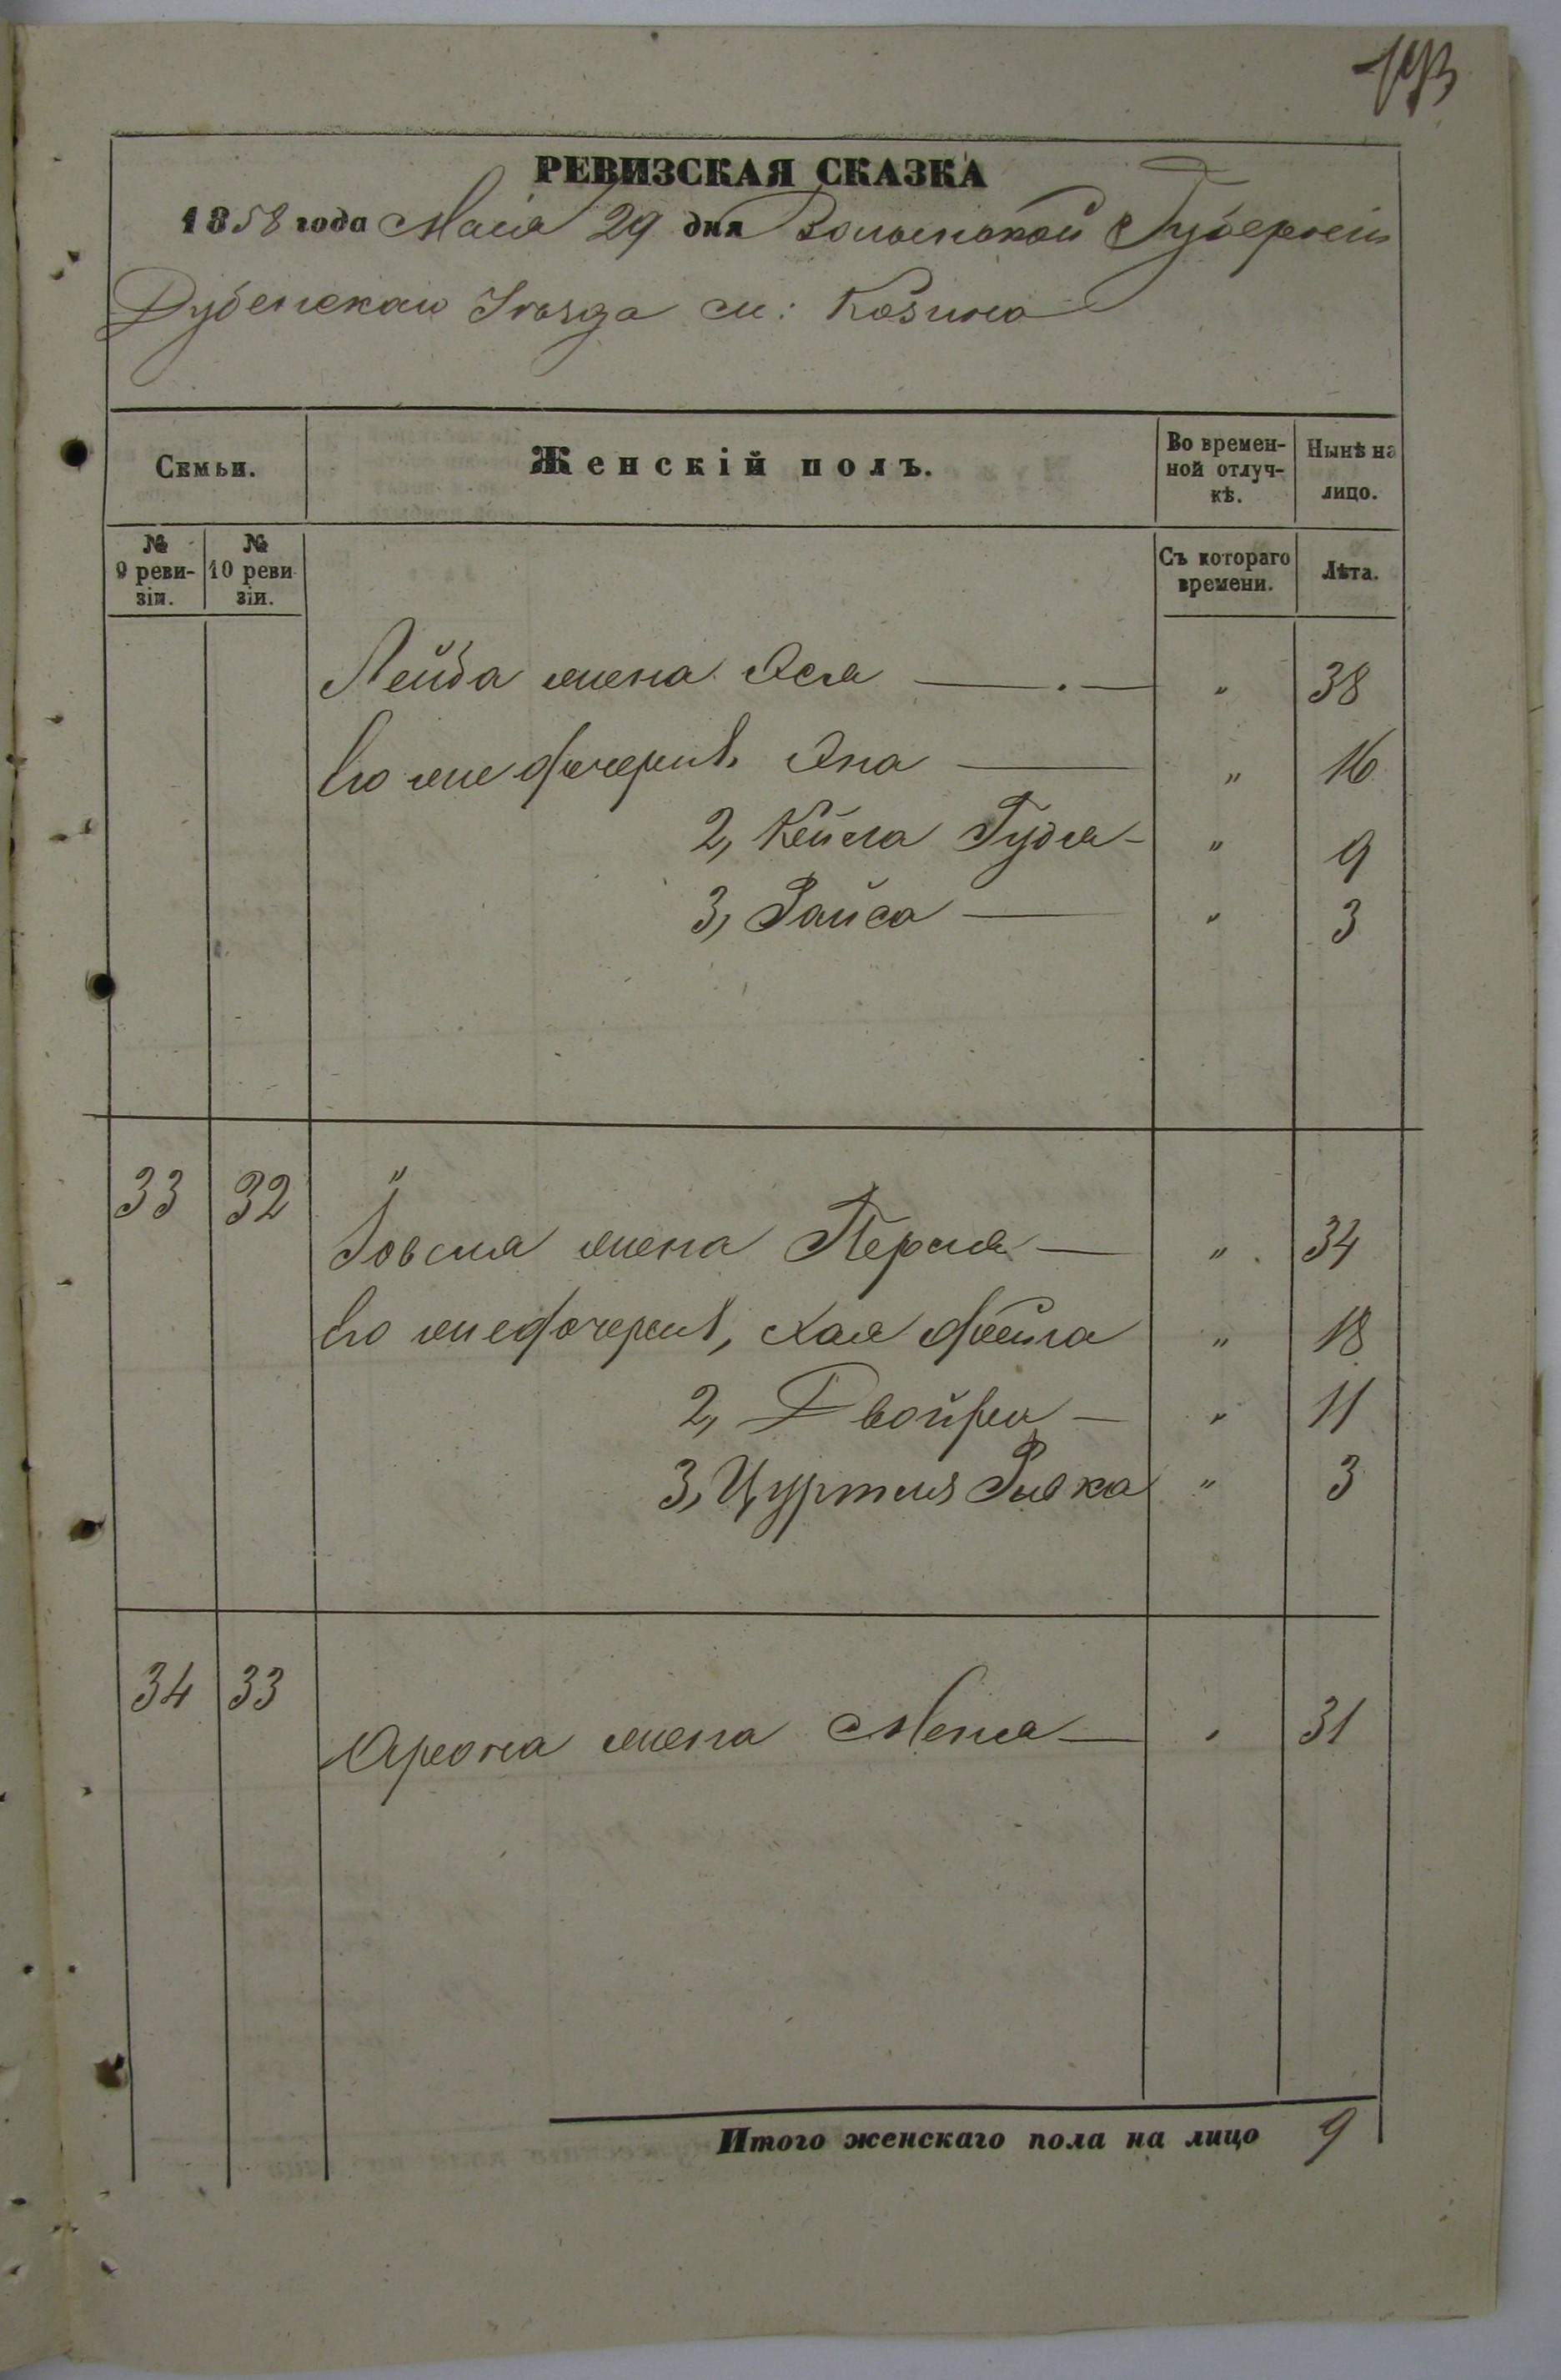 193
РЕВИЗСКАЯ СКАЗКА
1858 года Маія 29 дня Волынской Губерніи
Дубенскаго Уѣзда м: Козина
Семьи.
Женскій полъ.
Во времен-
ной отлуч-
кѣ.
Нынѣ на
лицо.
№
9 реви-
зіи.
№
10 реви
зіи.
Съ котораго
времени.
Лѣта.
Лейба жена Ася — . — „ 38
Его же дочери 1, Хна — „ 16
2, Кейла Гудя - „ 9
3, Райса — „ 3
33 32 "
Іовеля жена Перля — „ 34
Его же дочери 1, Хая Фейга „ 18
2, Двойра — „ 11
3, Цуртля Ривка „ 3
34 33
Арона жена Меня — „ 31
Итого женскаго пола на лицо 9